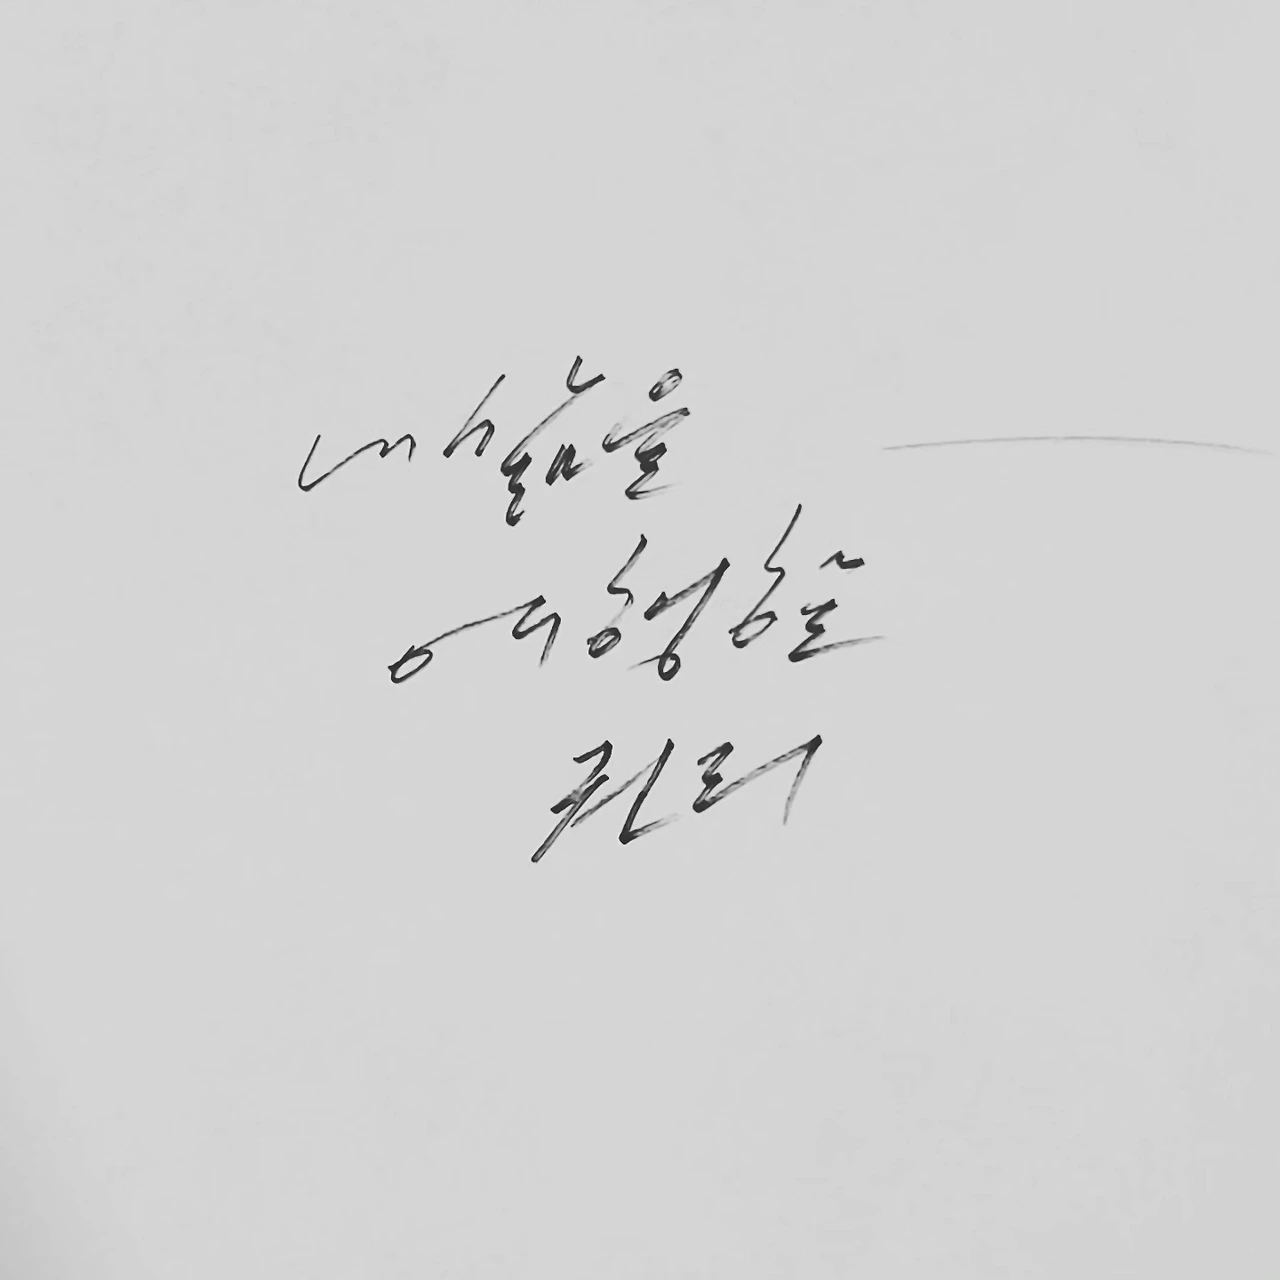 내 삶을
여행할
권리